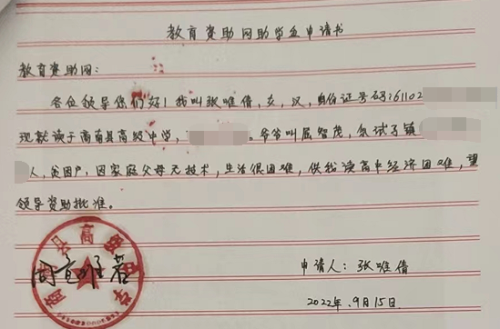 教育资助网助学金申请书
教育资助网:
各位领导你们好!我叫张唯倩,女,汉,身份证号码:61102
现就读于商南县高级中学,爷爷叫屈智茂,系试马镇
人,贫困户,因家庭父母无技术,生活很困难,供我读高中经济困难,望
领导资助批准。
申请人:张唯倩
2022年.9月15日.